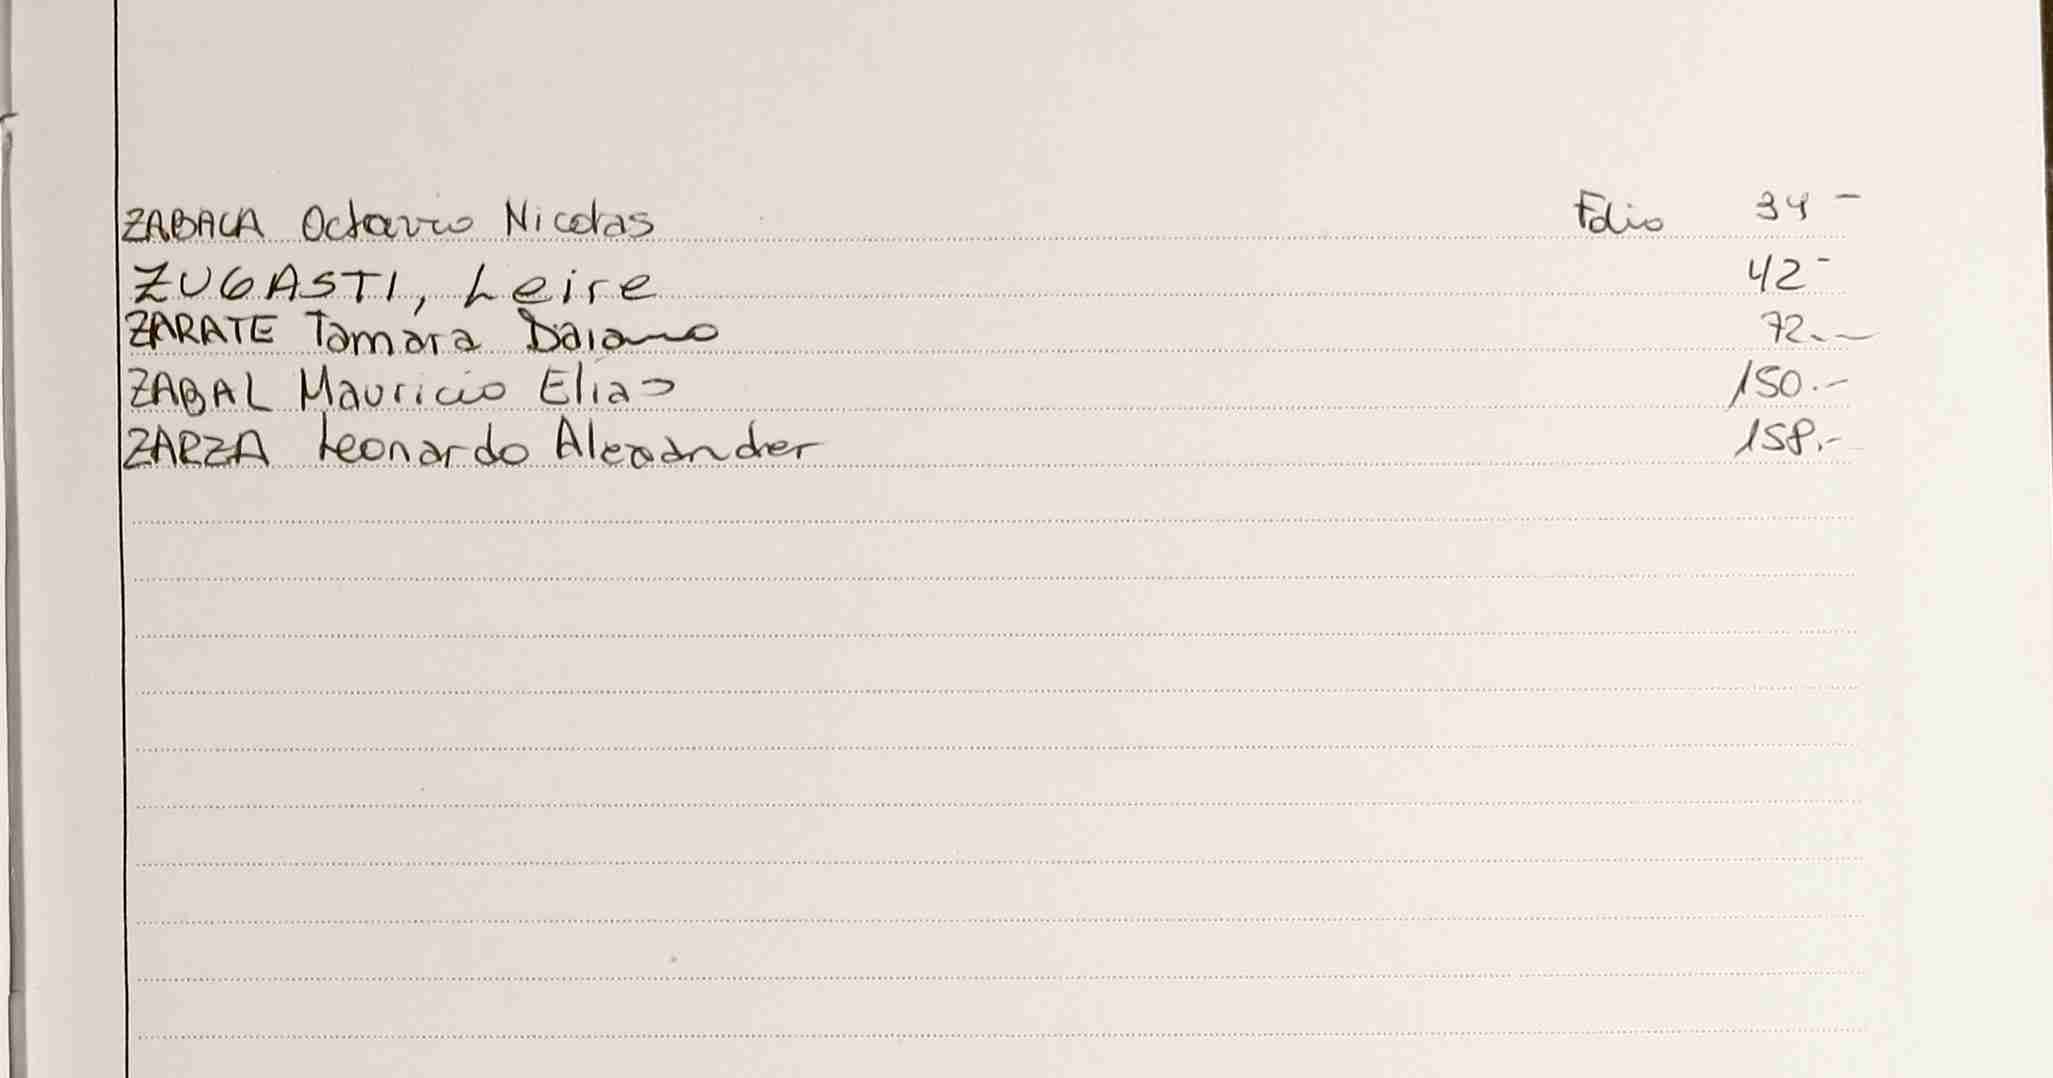 ZABALA Octavio Nicolas Folio 34 -
ZUGASTI, Leire 42 -
ZARATE Tamara Daiana 72.-
ZABAL Mauricio Elias 150.-
ZARZA Leonardo Alexander 158.-